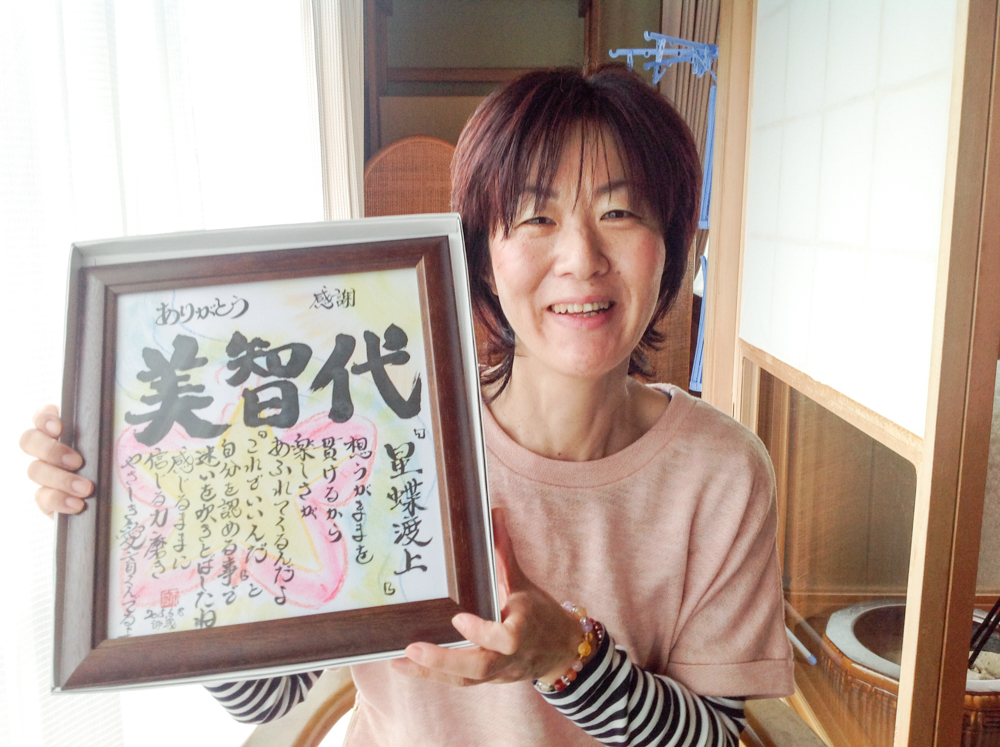 ありがとう
感謝
美智代
『星蝶渡上』
想うがままを
貫けるから
楽しさが
あふれてくるんだよ
『これでいいんだ』と
自分を認める事で
迷いを吹きとばしたね
感じるままに
信じる力磨き
やさしき